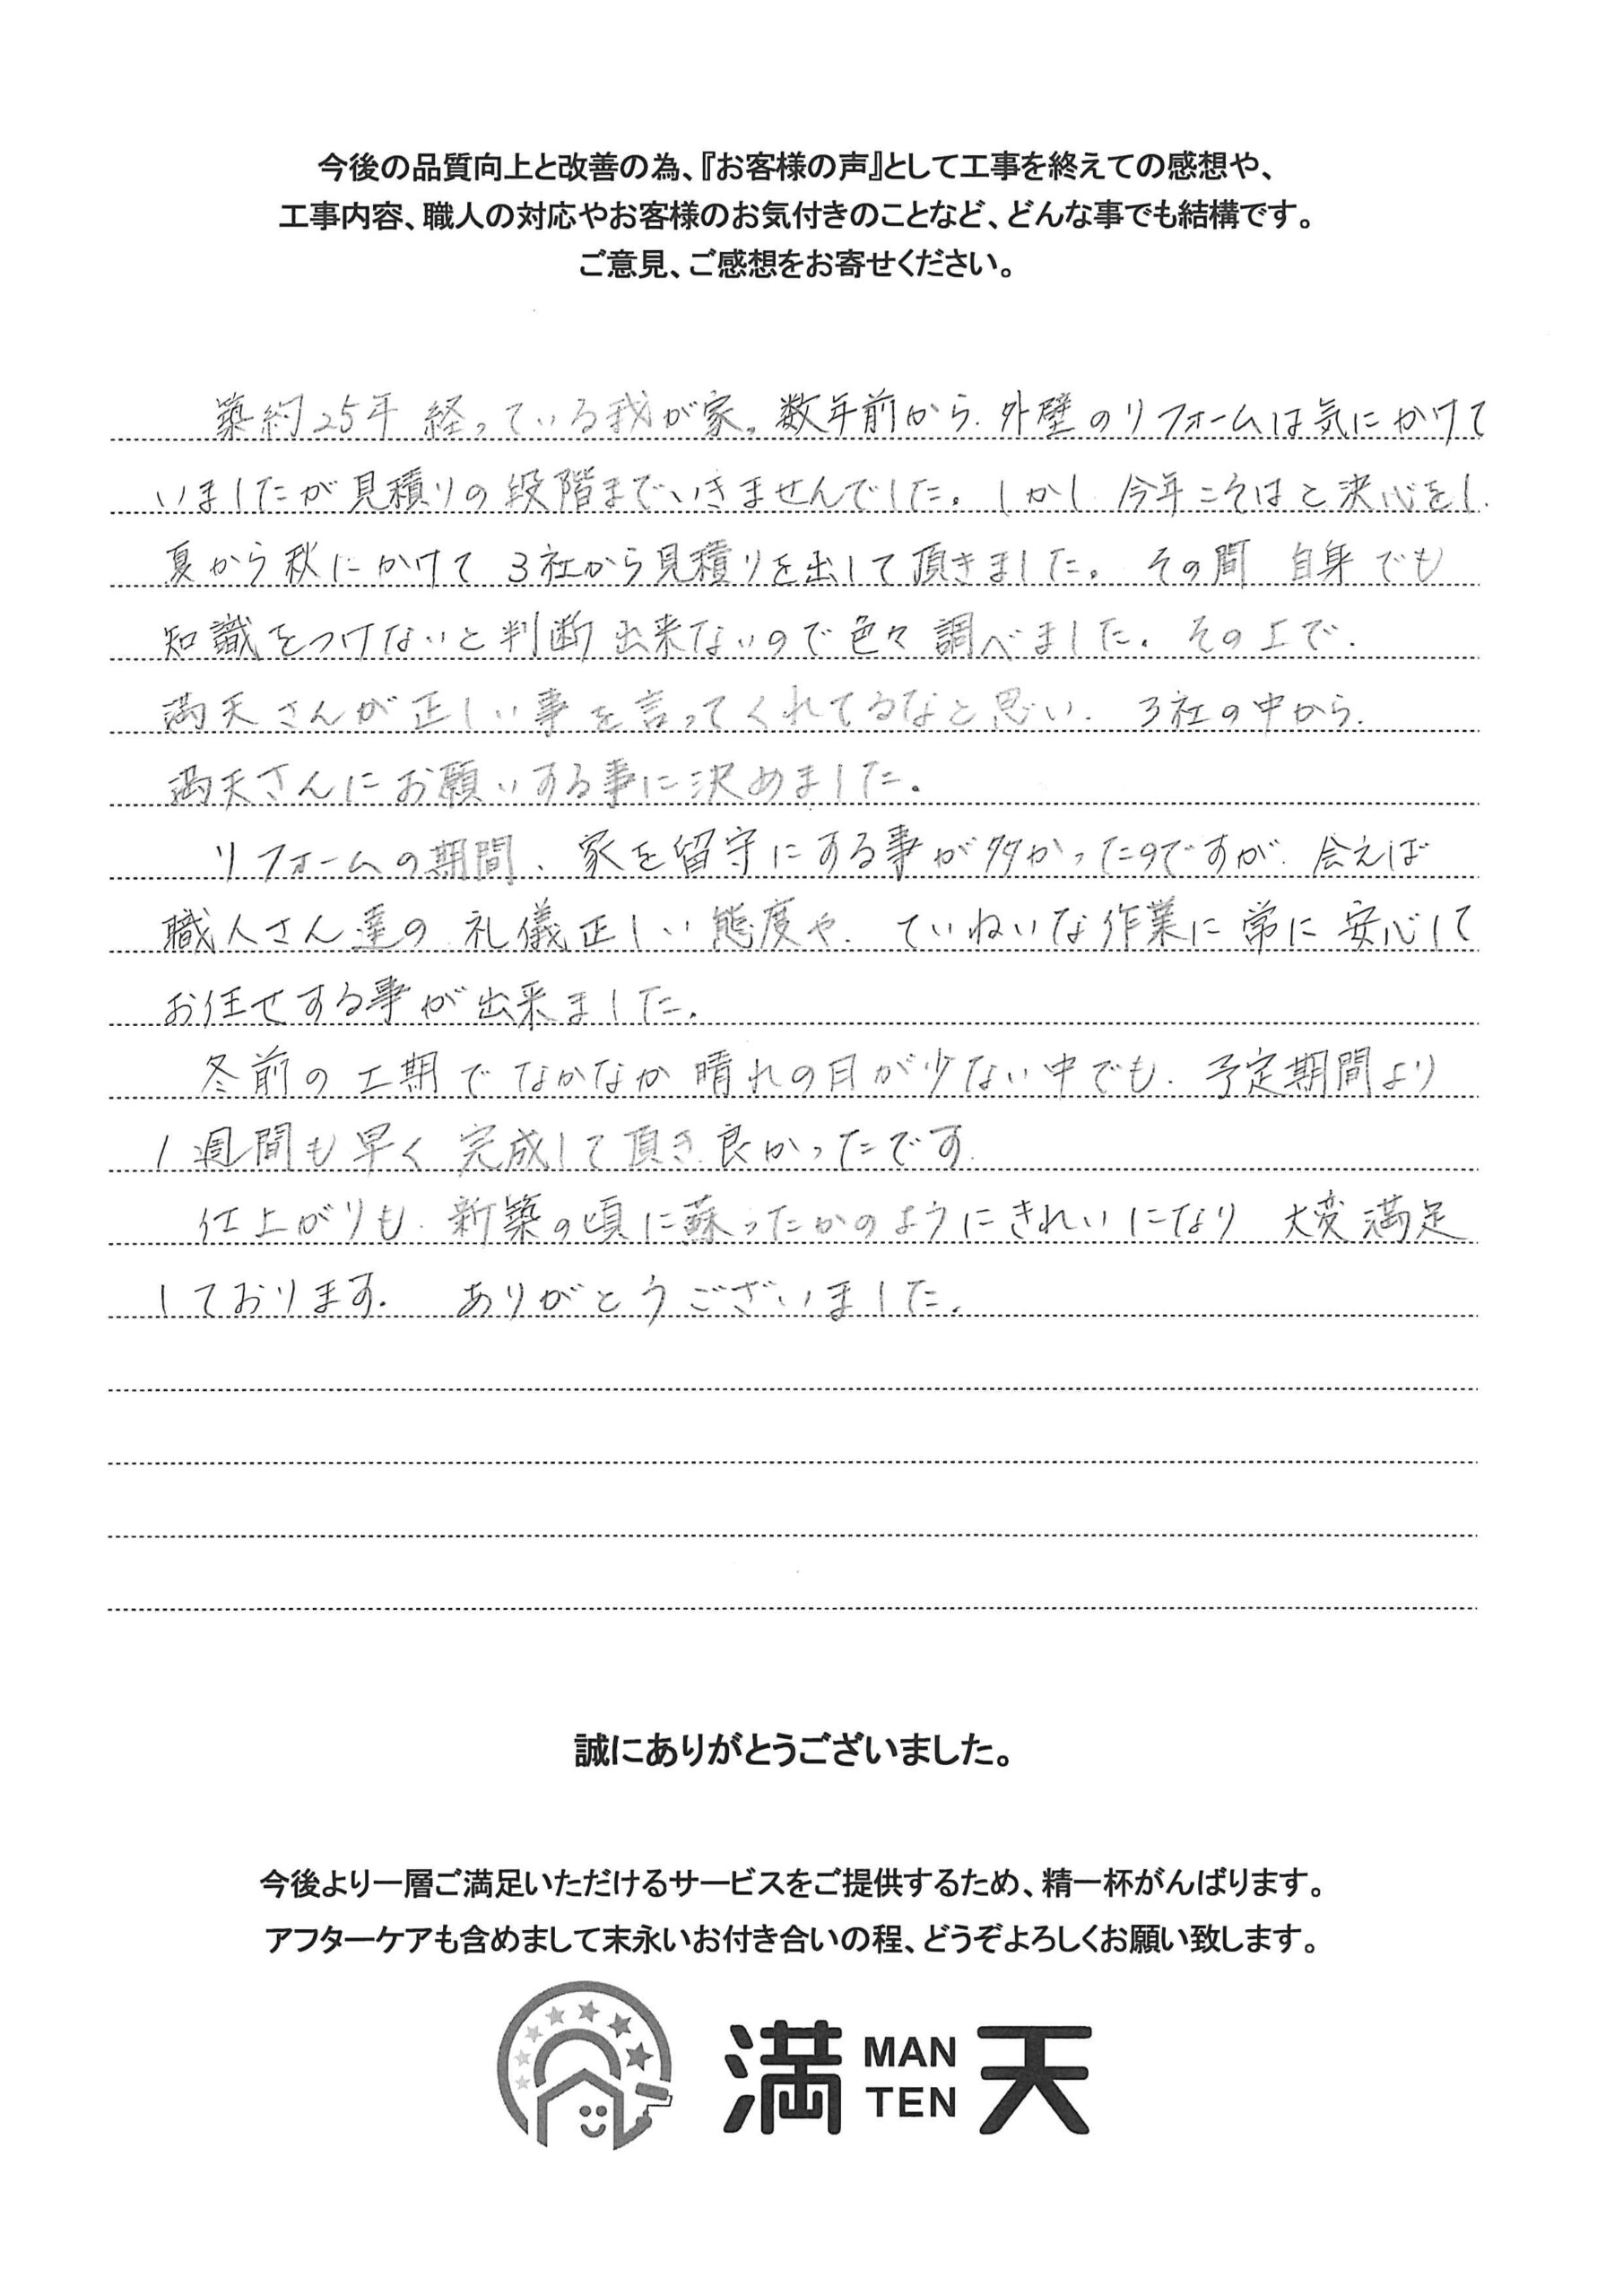 今後の品質向上と改善の為、『お客様の声』として工事を終えての感想や、
工事内容、職人の対応やお客様のお気付きのことなど、どんな事でも結構です。
ご意見、ご感想をお寄せください。
築約25年 経っている我が家。数年前から、外壁のリフォームは気にかけて
いましたが見積りの段階までいきませんでした。しかし 今年こそはと決心をし、
夏から秋にかけて 3社から見積りを出して頂きました。その間 自身でも
知識をつけないと判断出来ないので色々調べました。その上で、
満天さんが正しい事を言ってくれてるなと思い、3社の中から、
満天さんにお願いする事に決めました。
リフォームの期間、家を留守にする事が多かったのですが、会えば
職人さん達の 礼儀正しい態度や、ていねいな作業に常に安心して
お任せする事が出来ました。
冬前の工期で なかなか晴れの日が少ない中でも、予定期間より
1週間も早く 完成して頂き、良かったです。
仕上がりも、新築の頃に蘇ったかのようにきれいになり 大変満足
しております。 ありがとうございました。
誠にありがとうございました。
今後より一層ご満足いただけるサービスをご提供するため、精一杯がんばります。
アフターケアも含めまして末永いお付き合いの程、どうぞよろしくお願い致します。
満 MAN TEN 天